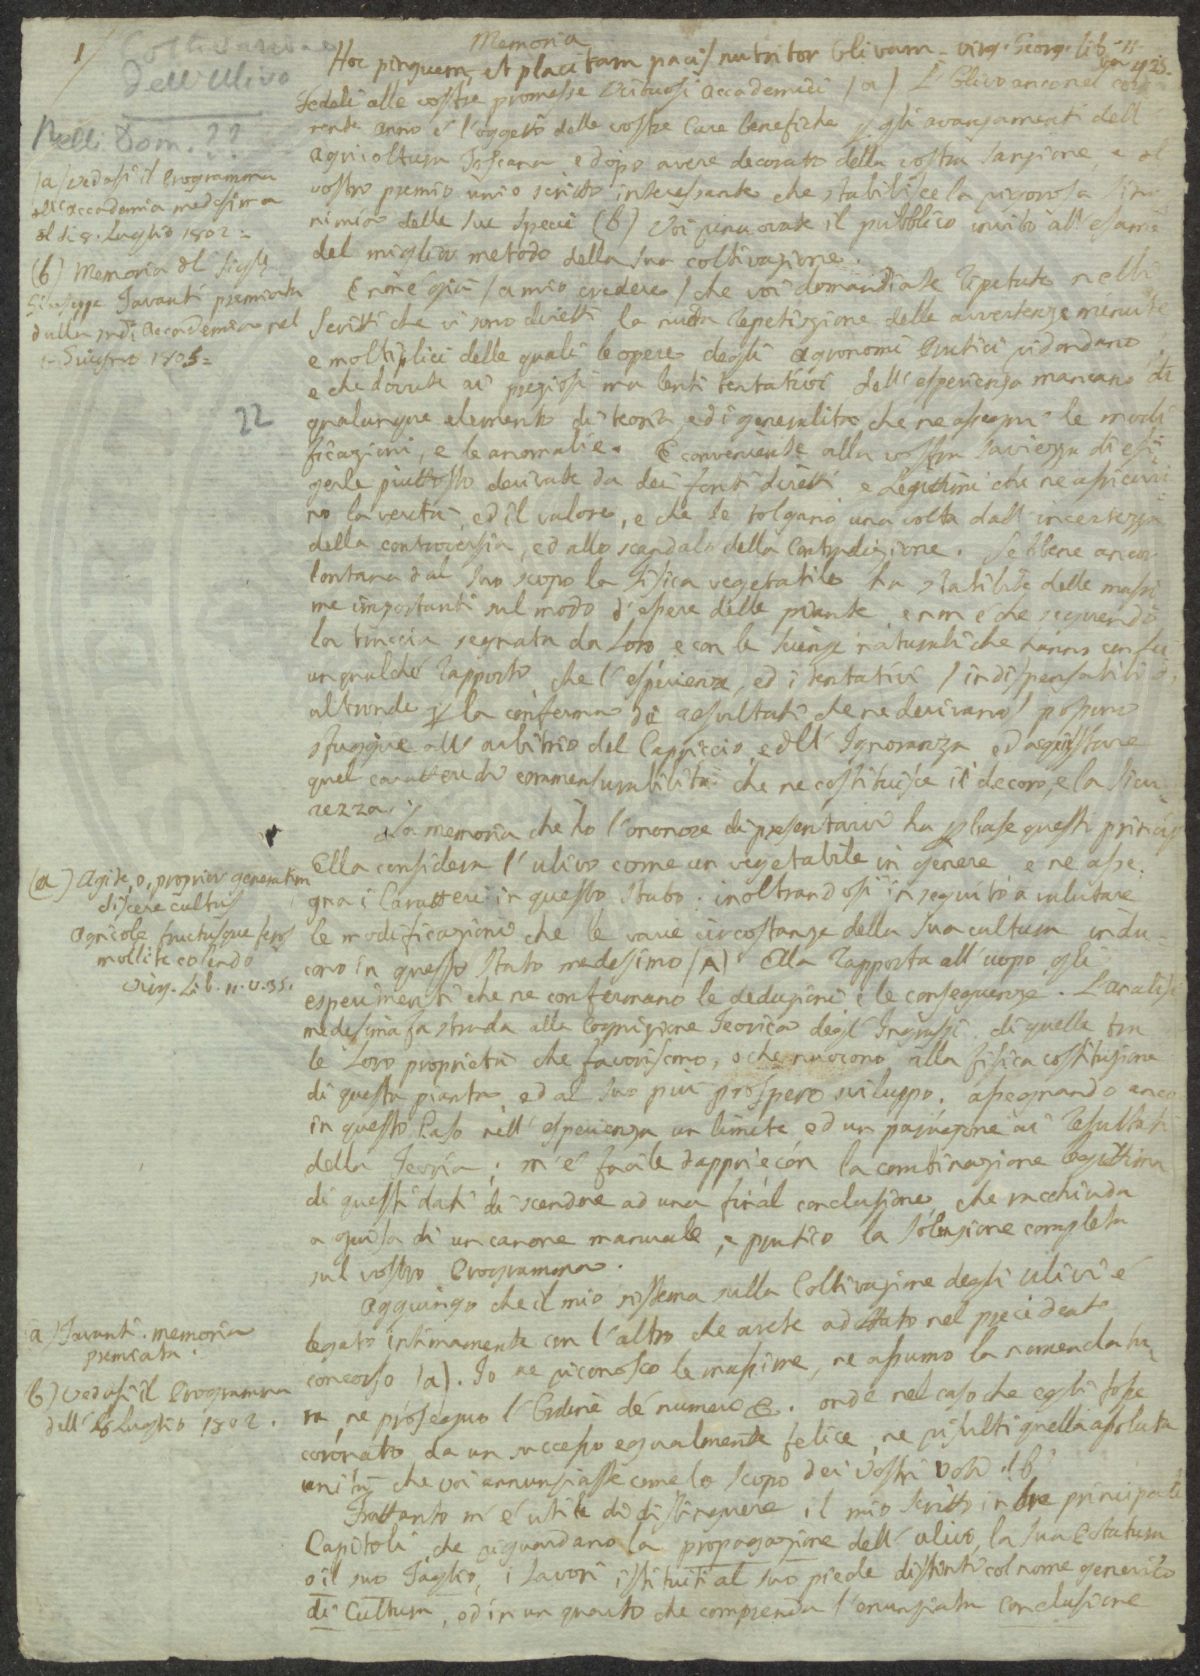 1/
Coltivazione
dell'Ulivo
Nelli Dom. ??
Memoria
Hoc pinguem, et placitam paci nutritor Olivam. Virg. Georg. Lib. II
v. 425.
Fedeli alle vostre promesse Virtuosi Accademici (a) L'Ulivo anco nel cor
rente anno è l'oggetto delle vostre Cure benefiche p gli avanzamenti dell'
Agricoltura Toscana e dopo avere decorato della vostra Sanzione, e del
vostro premio uno scritto interessante che stabilisce la rigorosa Sino
nimia delle sue Specie (b) Voi rinnovate il pubblico invito all'esame
del miglior metodo della sua coltivazione.
(a) Vedasi il Programma
dell'Accademia medesima
del dì 8. Luglio 1802 =
(b) Memoria del Sigr.
Giuseppe Tavanti premiata
dalla sudd. Accademia nel
Giugno 1805 =
22
E non è già (a mio credere) che voi domandiate ripetute nelli
Scritti che vi sono diretti la nuda repetizione delle avvertenze minute
e moltiplici delle quali le opere degli Agronomi Pratici ridondano,
e che dovute ai preziosi ma lenti tentativi dell'esperienza mancano di
qualunque elemento di teoria, e di generalità che ne assegni le modi
ficazioni, e le anomalie. È conveniente alla vostra Saviezza di esi
gerle piuttosto derivate da dei fonti diretti e legittimi che ne assicuri
no la verità, ed il valore, e che le tolgano una volta dall'incertezza
della controversia, ed allo scandalo della Contradizione. Sebbene ancor
lontana dal suo scopo la Fisica vegetabile ha stabilite delle massi
me importanti sul modo d'essere delle piante e non è che seguendo
la traccia segnata da Loro e con le Scienze naturali che hanno con se
un qualche rapporto che l'esperienza, ed i tentativi (indispensabili
altronde p la conferma dei resultati che ne derivano) possono
sfuggire all'arbitrio del Capriccio, e dell'Ignoranza ed acquistare
quel carattere di commensurabilità che ne costituisce il decoro, e la Sicu
rezza.
La memoria che hò l'onore di presentarvi ha p base questi principj
Ella considera l'ulivo come un vegetabile in genere e ne asse
gna i Caratteri in questo Stato: inoltrandosi in seguito a valutare
le modificazioni che le varie circostanze della sua cultura indu
cono in questo Stato medesimo (A) Ella rapporta all'uopo gli
esperimenti che ne confermano le deduzioni e le conseguenze. L'analisi
medesima fa strada alla Cognizione Teorica degl'Ingrassi di quelle tra
le Loro proprietà che favoriscono, o che nuocono alla fisica costituzione
di questa pianta ed al suo più prospero sviluppo. Assegnando anco
in questo Caso nell'esperienza un limite ed un paragone ai resultati
della Teoria; m'è facile dappoi con la combinazione legittima
di questi dati di scendere ad una final conclusione, che racchiuda
a guisa di un canone manuale, e pratico la Soluzione completa
sul vostro Programma.
(a) Agite, o, proprios generatim
discite cultus
Agricolae, fructusque feros
mollite colendo
Virg. Lib. II. v. 35.
Aggiungo che il mio sistema sulla Coltivazione degli Ulivi è
legato intimamente con l'altro che avete adottato nel precedente
concorso (a). Io ne riconosco le massime, ne assumo la nomenclatu
ra, ne proseguo l'Ordine de numeri. onde nel caso che egli fosse
coronato da un successo egualmente felice, ne risulti quella assoluta
unità che voi annunziaste come lo scopo dei Vostri Voti (b)
(a) Tavanti. memoria
premiata.
(b) Vedasi il Programma
dell'8 Luglio 1802.
Frattanto m'è utile di distinguere il mio Scritto in tre principali
Capitoli che riguardano la propagazione dell'ulivo, la sua Statura
o il suo Taglio, i lavori istituiti al suo piede distinti col nome generico
di Cultura, ed in un quarto che comprenda l'enunziata conclusione